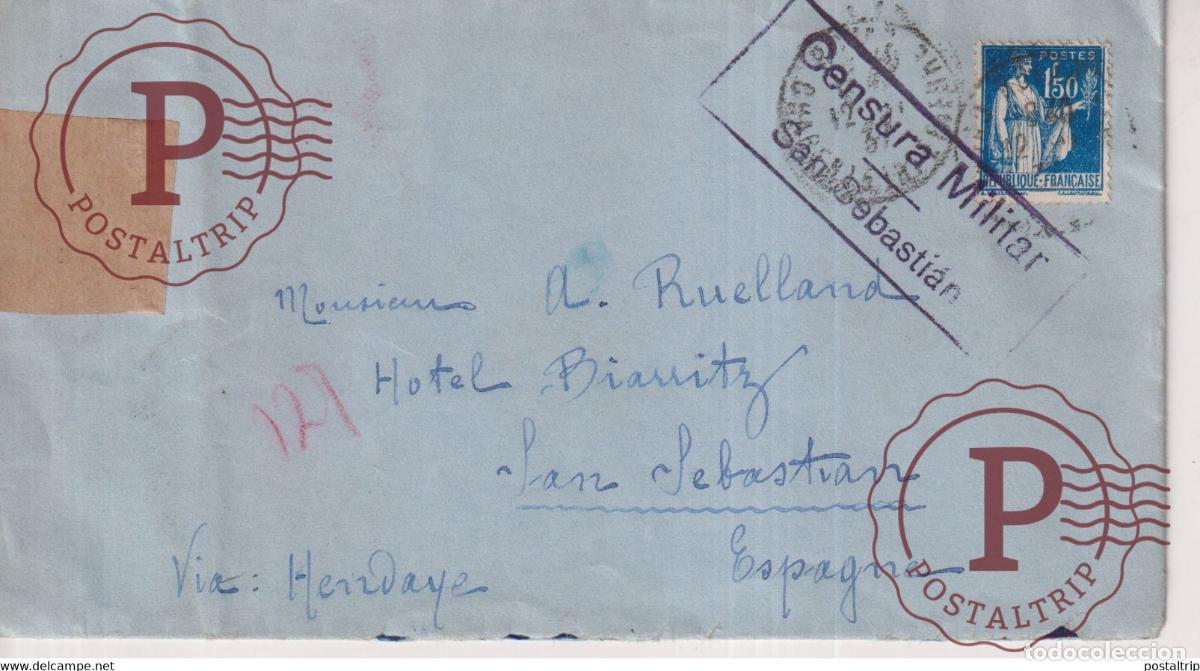 POSTES
1F50
RÉPUBLIQUE-FRANÇAISE
Censura Militar
San Sebastián
P
POSTALTRIP
Monsieur A. Ruelland
127
Hotel Biarritz
San Sebastian
Via: Hendaye
Espagne
P
POSTALTRIP
todocoleccion
www.delcampe.net
postaltrip